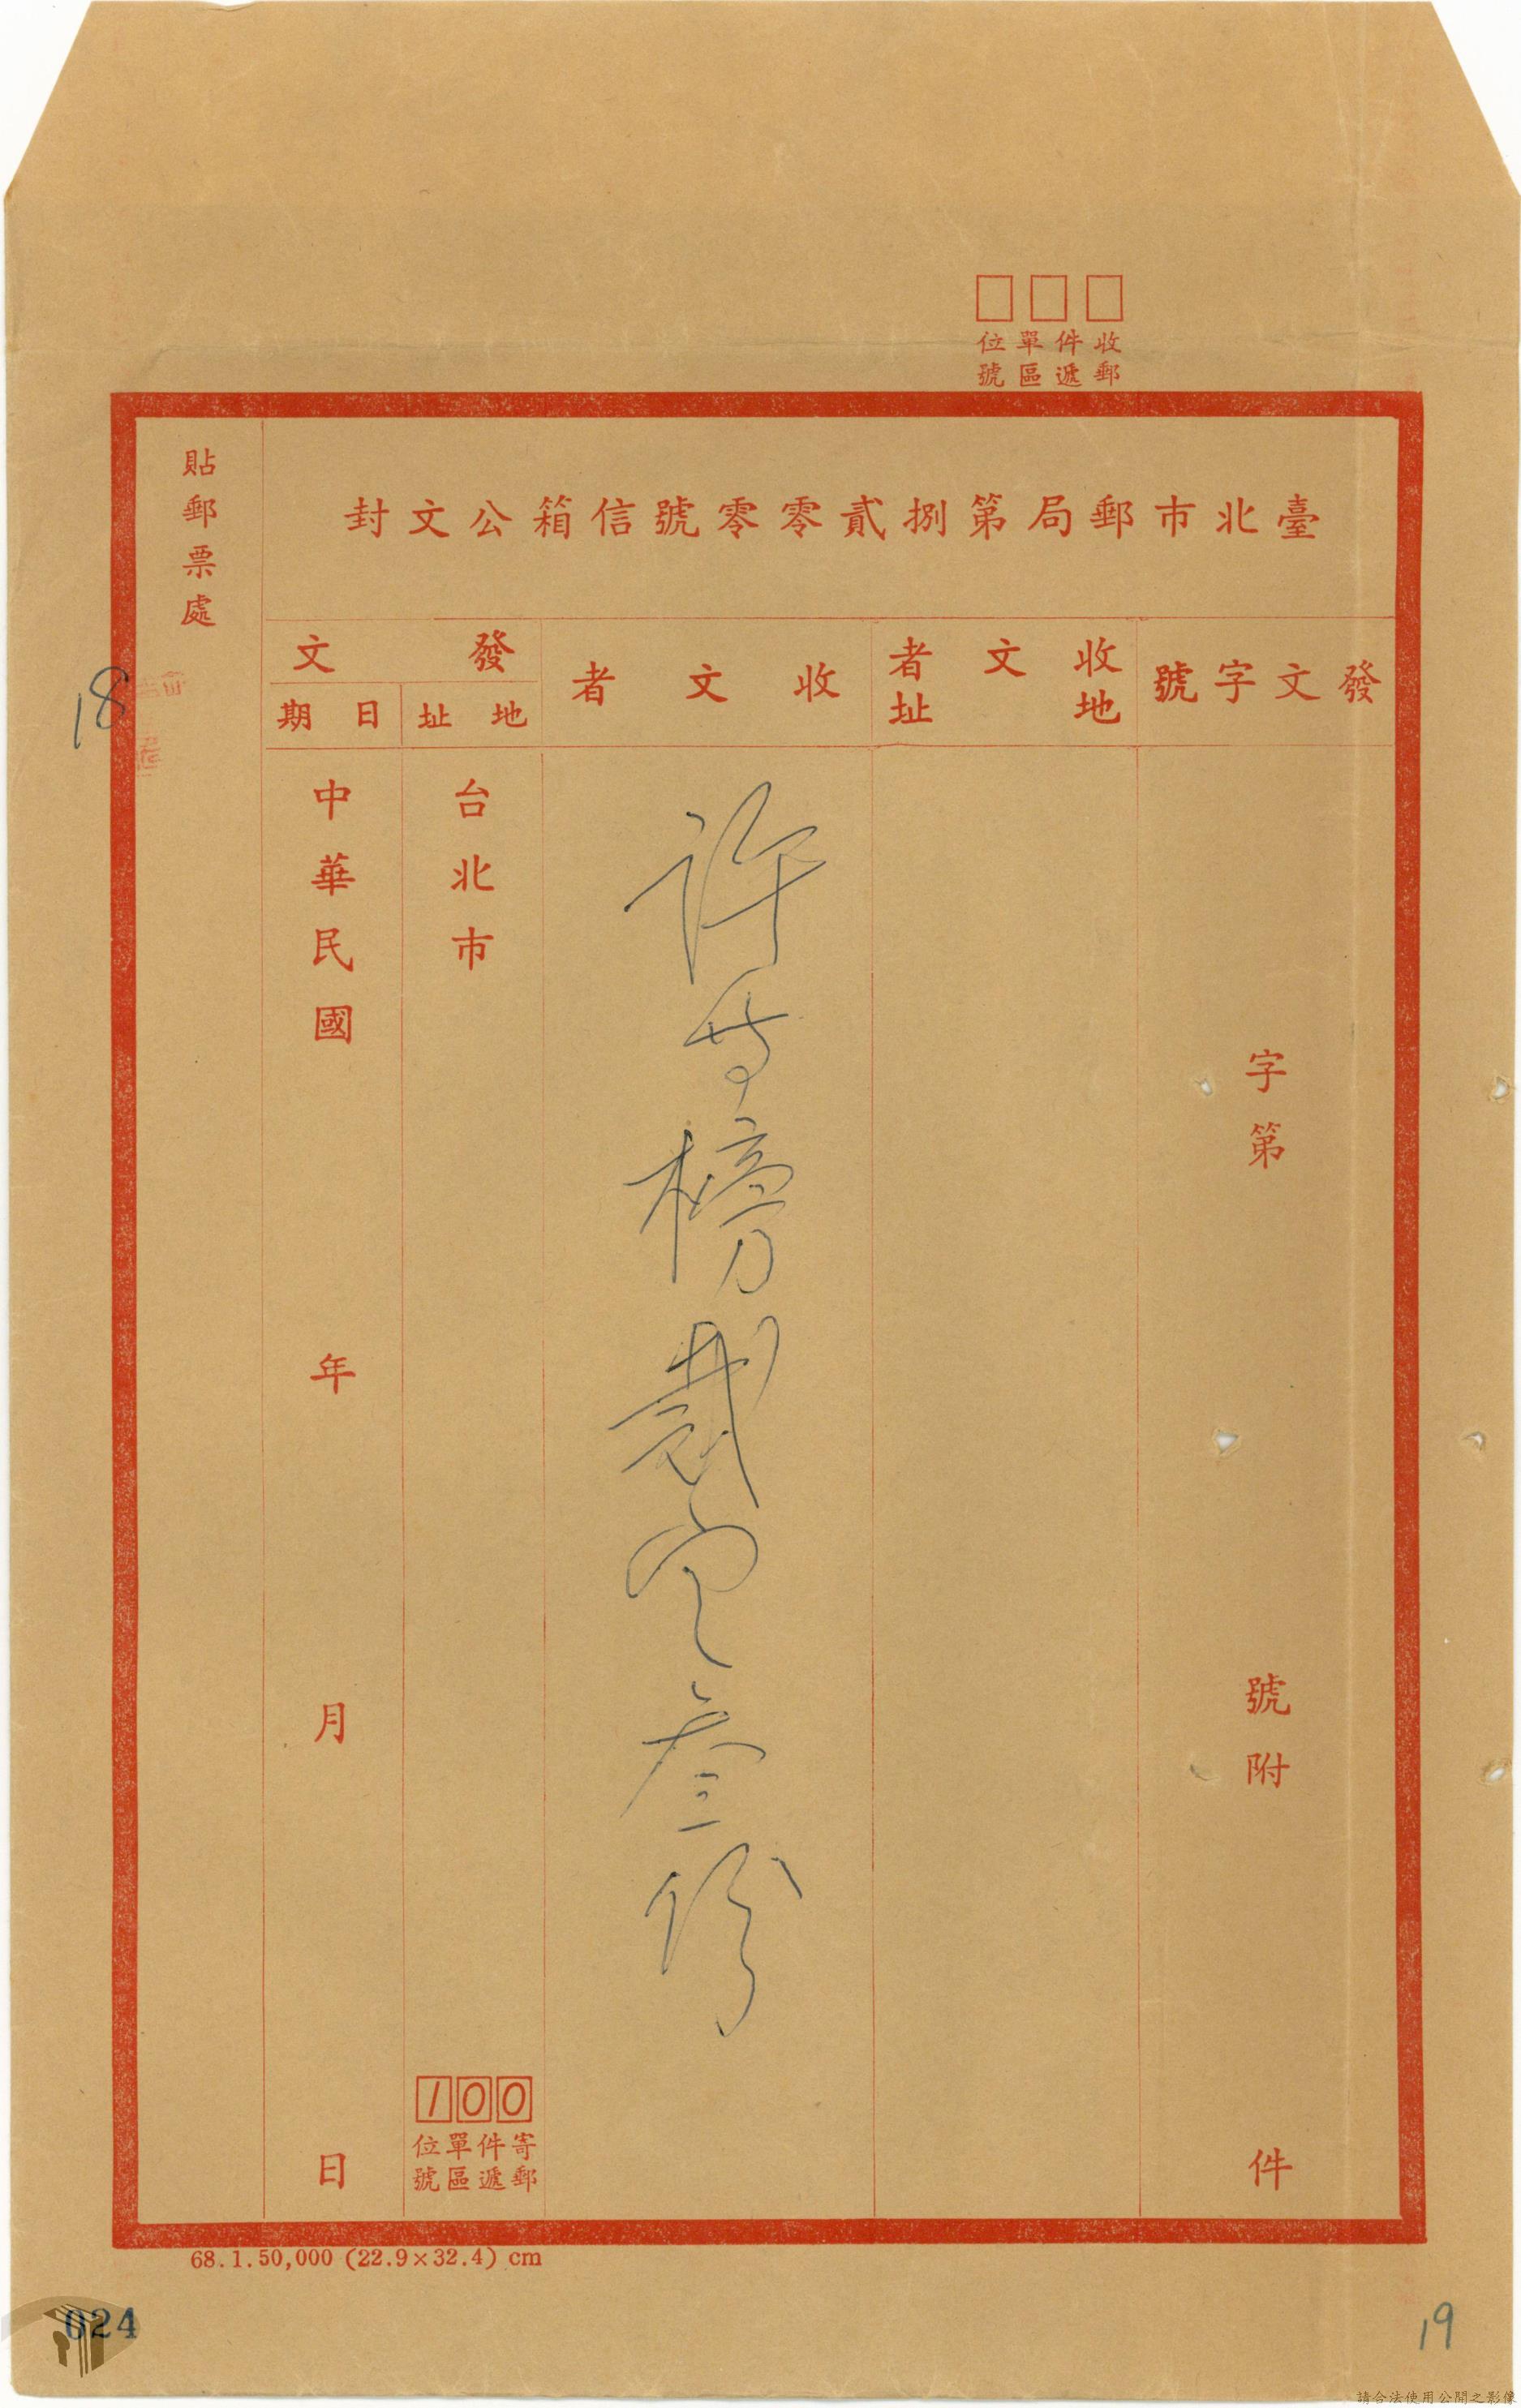 收件單位
郵遞區號
臺北市郵局第捌貳零零號信箱公文封
貼郵票處
發文字號
收文者
地址
收文者
發文
地址
日期
字第號附件
許等榜裁定叁份
台北市
中華民國年月日
100
寄件單位
郵遞區號
68.1.50,000 (22.9×32.4) cm
18
024
19
請合法使用公開之影像